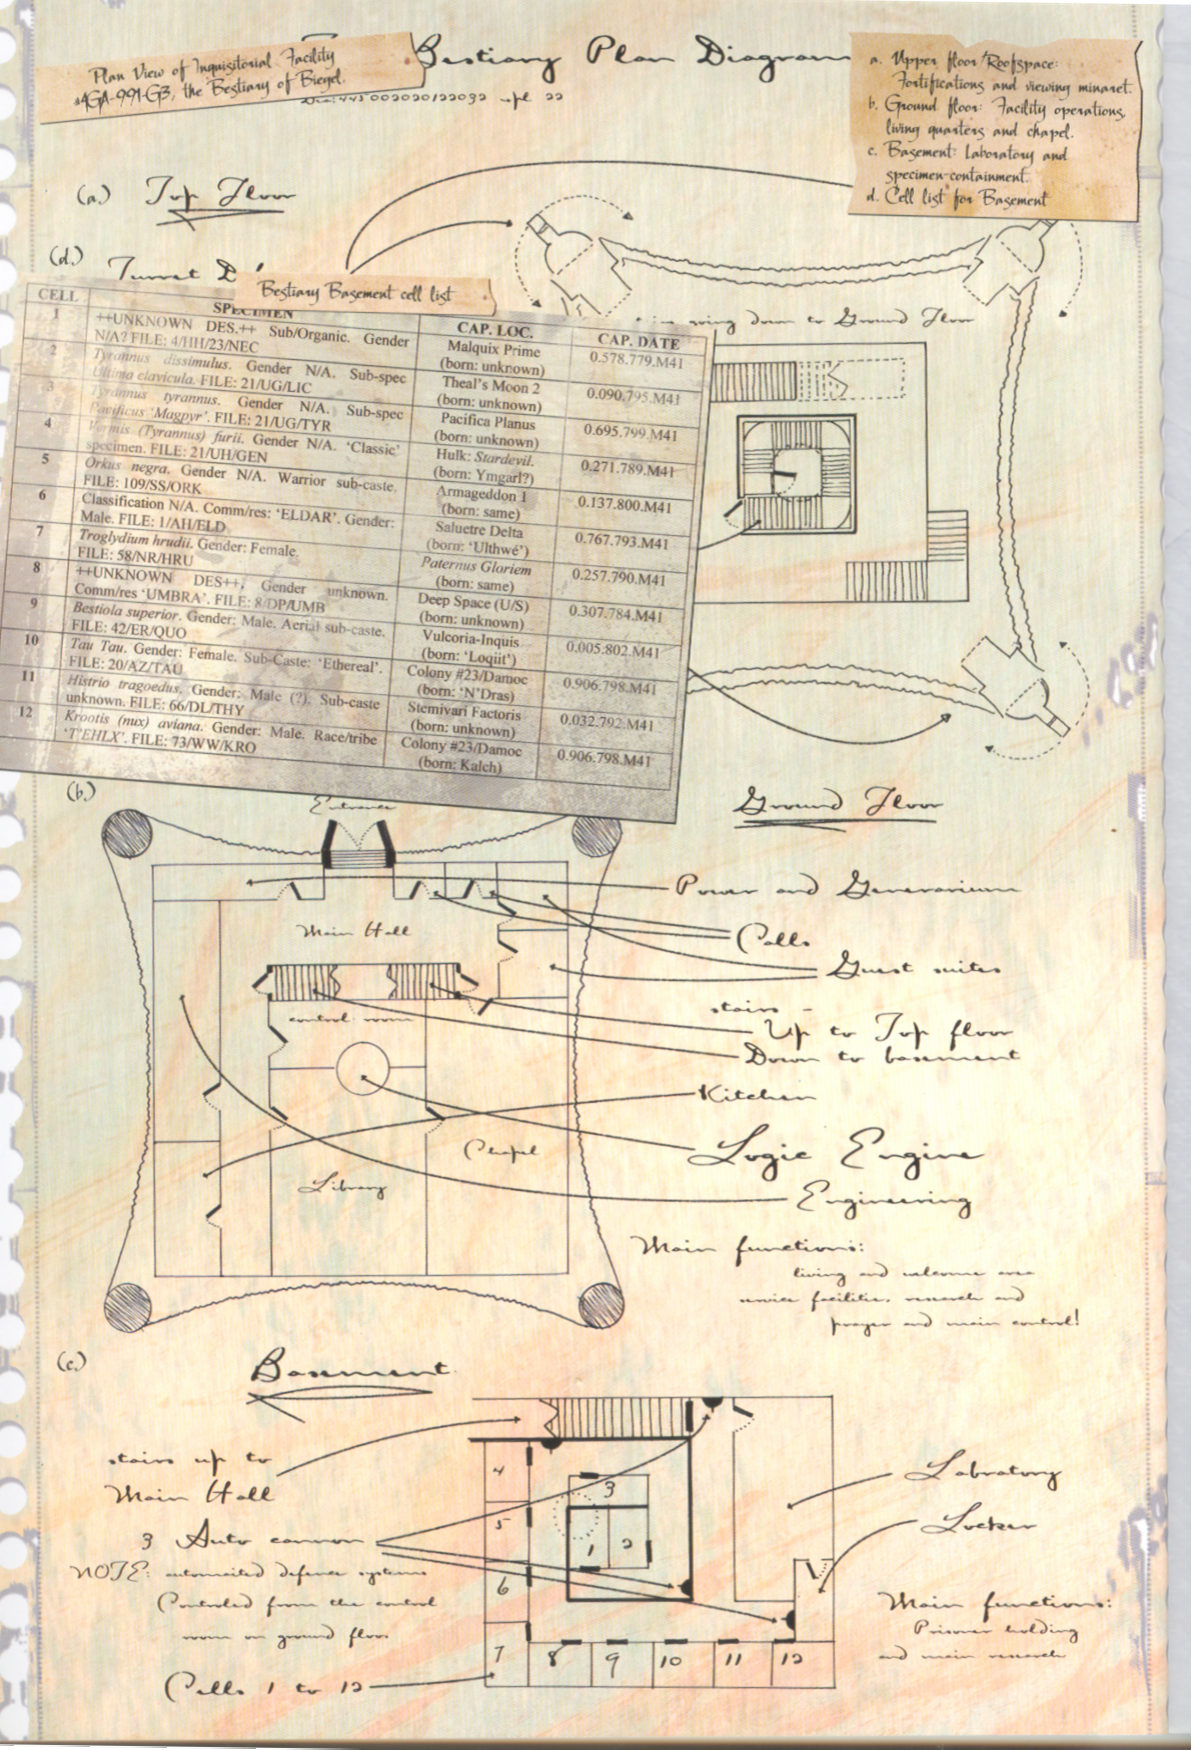 Plan View of Inquisitorial Facility
*4GA-991-G3, the Bestiary of Biegel.
Bestiary Plan Diagram
a. Upper floor/Roofspace:
Fortifications and viewing minaret.
b. Ground floor: Facility operations,
living quarters and chapel.
c. Basement: Laboratory and
specimen-containment.
d. Cell list for Basement
(a.) Top Floor
(d.) Turret
going down to Ground Floor
Bestiary Basement cell list
CELL SPECIMEN CAP. LOC. CAP. DATE
1 ++UNKNOWN DES.++ Sub/Organic. Gender
N/A? FILE: 4/HH/23/NEC
Malquix Prime
(born: unknown)
0.578.779.M41
2 Tyrannus dissimulus. Gender N/A. Sub-spec
Ultima clavicula. FILE: 21/UG/LIC
Theal's Moon 2
(born: unknown)
0.090.795.M41
3 Tyrannus tyrannus. Gender N/A. Sub-spec
Pacificus 'Magpyr'. FILE: 21/UG/TYR
Pacifica Planus
(born: unknown)
0.695.799.M41
4 Vermis (Tyrannus) furii. Gender N/A. 'Classic'
specimen. FILE: 21/UH/GEN
Hulk: Stardevil.
(born: Ymgarl?)
0.271.789.M41
5 Orkus negra. Gender N/A. Warrior sub-caste.
FILE: 109/SS/ORK
Armageddon 1
(born: same)
0.137.800.M41
6 Classification N/A. Comm/res: 'ELDAR'. Gender:
Male. FILE: 1/AH/ELD
Saluetre Delta
(born: 'Ulthwé')
0.767.793.M41
7 Troglydium hrudii. Gender: Female.
FILE: 58/NR/HRU
Paternus Gloriem
(born: same)
0.257.790.M41
8 ++UNKNOWN DES++, Gender unknown.
Comm/res 'UMBRA'. FILE: 8/DP/UMB
Deep Space (U/S)
(born: unknown)
0.307.784.M41
9 Bestiola superior. Gender: Male. Aerial sub-caste.
FILE: 42/ER/QUO
Vulcoria-Inquis
(born: 'Loqiit')
0.005.802.M41
10 Tau Tau. Gender: Female. Sub-Caste: 'Ethereal'.
FILE: 20/AZ/TAU
Colony #23/Damoc
(born: 'N'Dras)
0.906.798.M41
11 Histrio tragoedus. Gender: Male (?). Sub-caste
unknown. FILE: 66/DL/THY
Stemivari Factoris
(born: unknown)
0.032.792.M41
12 Krootis (nux) aviana. Gender: Male. Race/tribe
'T'EHLX'. FILE: 73/WW/KRO
Colony #23/Damoc
(born: Kalch)
0.906.798.M41
(b.) Ground Floor
Entrance
Power and Generarium
Main Hall
Cells
Guest suites
control room
stairs -
Up to Top floor
Down to basement
Kitchen
Logic Engine
Chapel
Library
Engineering
Main functions:
living and welcome area
service facilities, research and
prayer and main control!
(c.) Basement
stairs up to
Main Hall
4
3
5
1 2
6
7 8 9 10 11 12
Labratory
Locker
3 Auto cannon
NOTE: automaited defence systems
Controled from the control
room on ground floor.
Cells 1 to 12
Main functions:
Prisoner holding
and main research